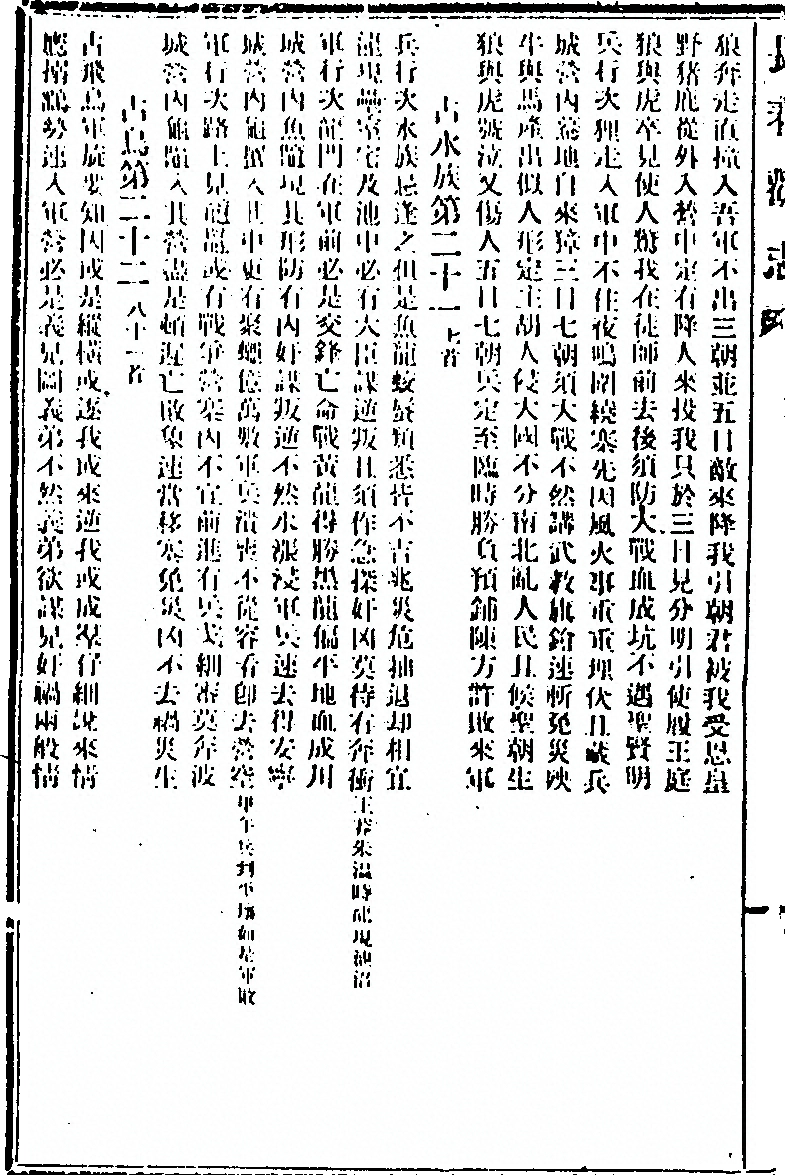 狼奔走直撞入吾軍不出三朝並五日敵來降我引朝君被我受恩皇
野豬鹿從外入營中定有降人來投我只於三日見分明引使履王庭
狼與虎卒見使人驚我在徒師前去後須防大戰血成坑不遇聖賢明
兵行次狸走入軍中不住夜鳴圍繞寨先因風火事重重埋伏且藏兵
城營內驀地自來獐三日七朝須大戰不然講武教旗鎗速斬免災殃
牛與馬產出似人形定主胡人侵大國不分南北亂人民且候聖朝生
狼與虎號泣又傷人五日七朝兵定至臨時勝負預鋪陳方許敗來軍
占水族第二十一 七首
兵行次水族忌逢之但是魚龍蛟蜃類悉皆不吉兆災危抽退却相宜
龍現壘室宅及池中必有大臣謀逆叛且須作急探奸凶莫待有奔衝 王莽朱溫時龍現池沼
軍行次龍門在軍前必是交鋒亡命戰黃龍得勝黑龍偏平地血成川
城營內魚龍現其形防有內奸謀叛逆不然水漲浸軍兵速去得安寧
城營內龜鱉入其中更有聚蠅億萬數軍兵潰喪不從容看卽去營空
軍行次路上見龜黿或有戰軍營寨內不宜前進有兵戈細審莫奔波
城營內龜黿入其營盡是頓遲亡敗象速當移寨免災凶不去禍災生
占鳥第二十二 八十一首
占飛鳥軍旅要知因或是縱橫或逐我或來逆我或成羣仔細說來情
鷹搦鷂勢速入軍營必是義兄圖義弟不然義弟欲謀兄奸禍兩般情